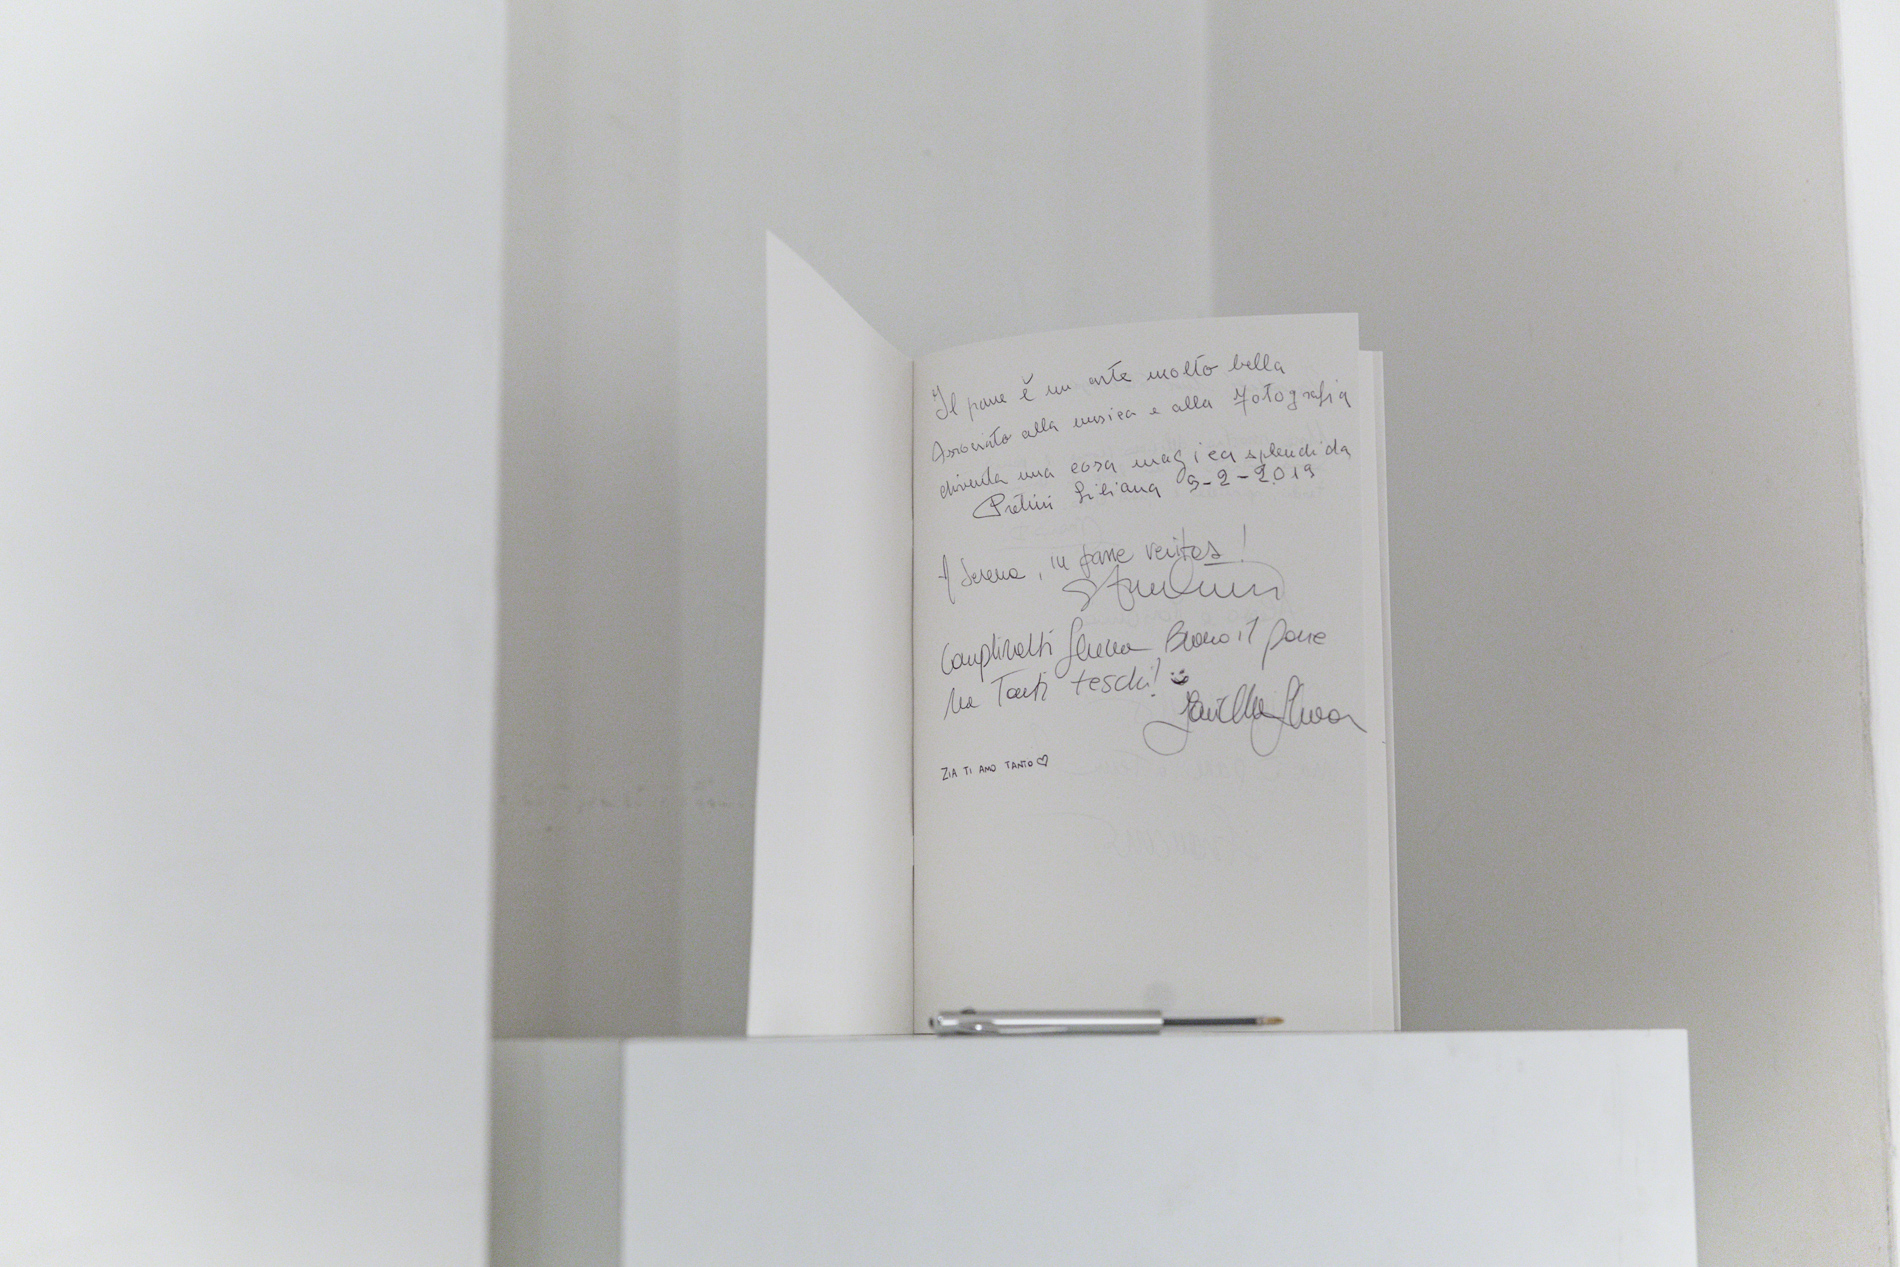 Il pane è un arte molto bella
Associato alla musica e alla Fotografia
diventa una cosa magica splendida
Liliana 9-2-2019
A Serena, in pane veritas!
Complimenti Serena Buono il pane
Ma Tanti teschi!
ZIA TI AMO TANTO♡